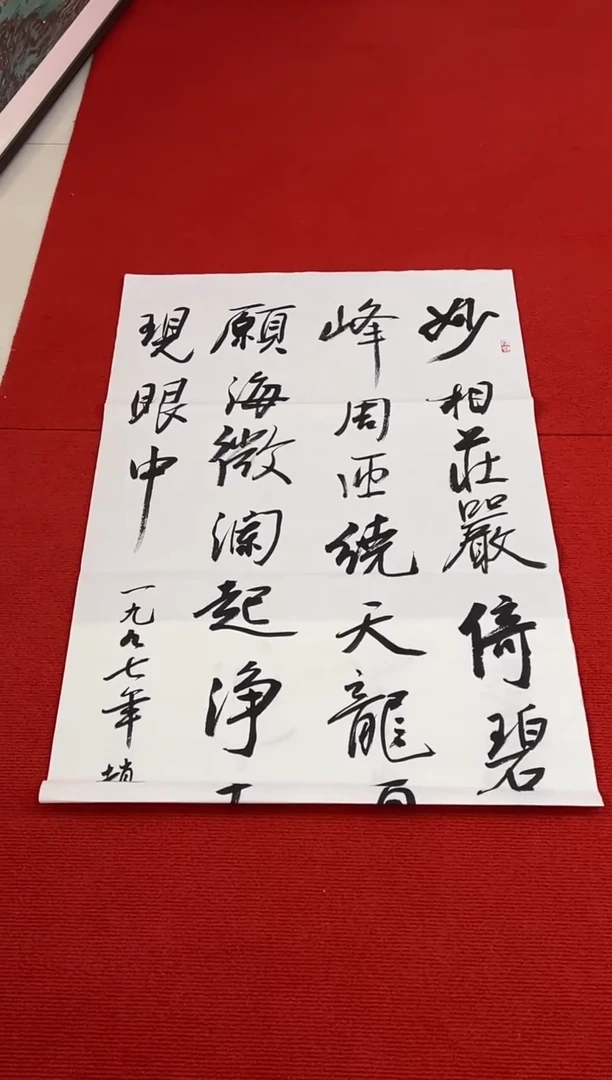 妙相莊嚴倚碧
峰周匝繞天龍
願海微瀾起淨
現眼中
一九九七年趙